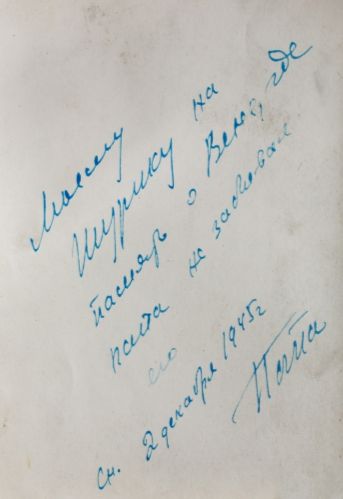 Моему
Шурику на
память о Вене, где
папа не забывал
его
Сн. 2 декабря 1945г
Папа